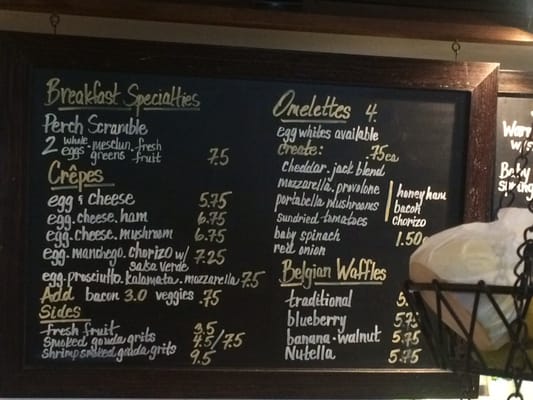 Breakfast Specialties
Perch Scramble
2 whole eggs . mesclun greens . fresh fruit 7.5
Crêpes
egg & cheese 5.75
egg. cheese. ham 6.75
egg. cheese. mushroom 6.75
egg. manchego. chorizo w/ salsa verde 7.25
egg. prosciutto. kalamata. mozzarella 7.5
Add bacon 3.0 veggies .75
Sides
fresh fruit 3.5
smoked gouda grits 4.5/7.5
shrimp smoked gouda grits 9.5
Omelettes 4.
egg whites available
Create: .75ea
cheddar. jack blend
mozzarella. provolone
portabella mushrooms
sundried tomatoes
baby spinach
red onion
honey ham
bacon
chorizo
1.50
Belgian Waffles
traditional 5.
blueberry 5.75
banana-walnut 5.75
Nutella 5.75
Baby